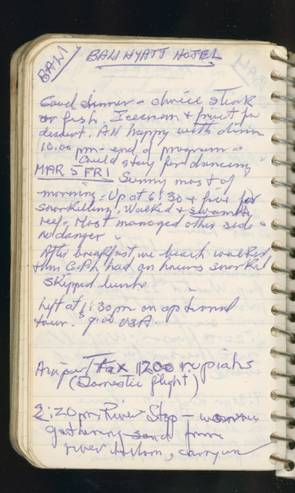 BALI
BALI HYATT HOTEL
Good dinner - choice steak
or fish. Icecream & fruit for
desert. All happy with dinner
10:00 pm - end of program -
Could stay for dancing
MAR 5 FRI Sunny most of
morning - Up at 6:30 & five for
snorkelling. Walked & swam to
reef. Most managed other side -
no danger
After breakfast, we beach walked
then G.P.h. had an hours snorkel
Skipped lunch
Left at 1:30 pm on optional
tour.
Airport Tax 1200 rupiahs
(Domestic flight)
2:20 pm River Stop - women
gathering sand from
river bottom, carry on